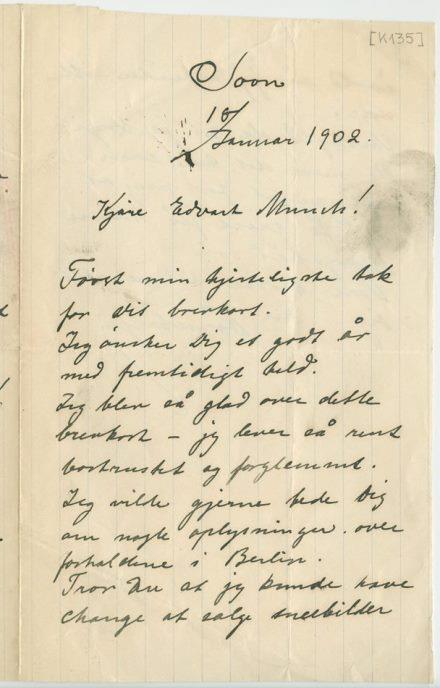 [K135]
Soon
18/
Januar 1902.
Kjäre Edvart Munch!
Föost min hjerteligste tak
for dit brevkort.
Jeg önsker Dig et godt år
med fremtidigt held.
Jeg blev så glad over dette
brevkort – jeg lever så rent
bortrustet og forglemmt.
Jeg vilde gjerne bede Dig
om nogle oplysninger over
forholdene i Berlin.
Tror Du at jeg kunde have
change at salge sneebilder